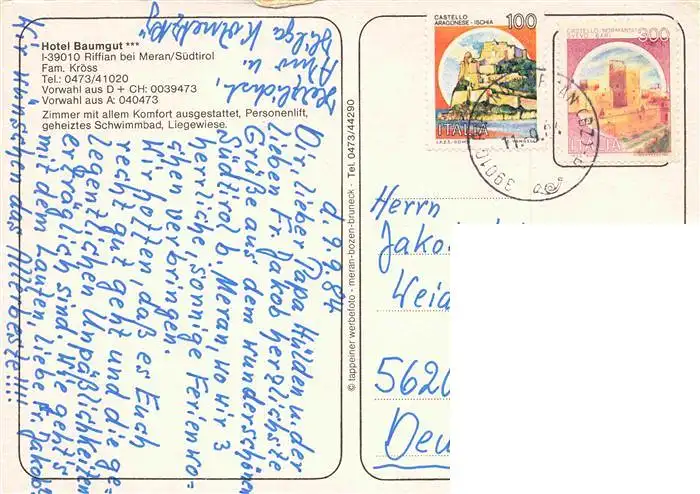 Hotel Baumgut ***
I-39010 Riffian bei Meran/Südtirol
Fam. Kröss
Tel.: 0473/41020
Vorwahl aus D + CH: 0039473
Vorwahl aus A: 040473
Zimmer mit allem Komfort ausgestattet, Personenlift,
geheiztes Schwimmbad, Liegewiese.
d. 9.9.84
Dir lieber Papa Hülden u. der
lieben Fr. Jakob herzlichste
Grüße aus dem wunderschönen
Südtirol b. Meran, wo wir 3
herrliche, sonnige Ferienwo-
chen verbringen.
Wir hoffen, daß es Euch
recht gut geht und die ge-
legentlichen Unpäßlichkeiten
erträglich sind. Wie geht's
mit dem Laufen, liebe Fr. Jakob?
Wir wünschen das Allerbeste!!!!
Herzlichst,
u.
Helga
© tappeiner werbefoto - meran-bozen-bruneck - Tel. 0473/44290
CASTELLO
ARAGONESE - ISCHIA
100
ITALIA
I.P.Z.S. - ROMA
CASTELLO NORMANNO
SVEVO - BARI
300
ITALIA
39010
BZ
11.9.
Herrn
Jako
Weid
5620
Deu